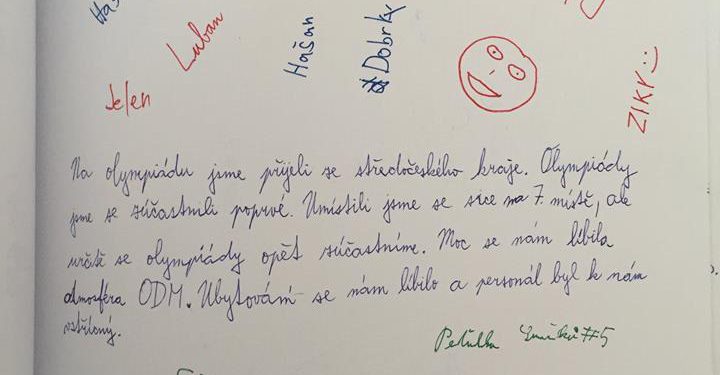 Luban
Hašan
Dobrky
Jelen
ZIKY :)
Na olympiádu jsme přijeli ze středočeského kraje. Olympiády
jsme se zúčastnili poprvé. Umístili jsme se sice na 7. místě, ale
určitě se olympiády opět zúčastníme. Moc se nám líbila
atmosféra ODM. Ubytování se nám líbilo a personál byl k nám
vstřícný.